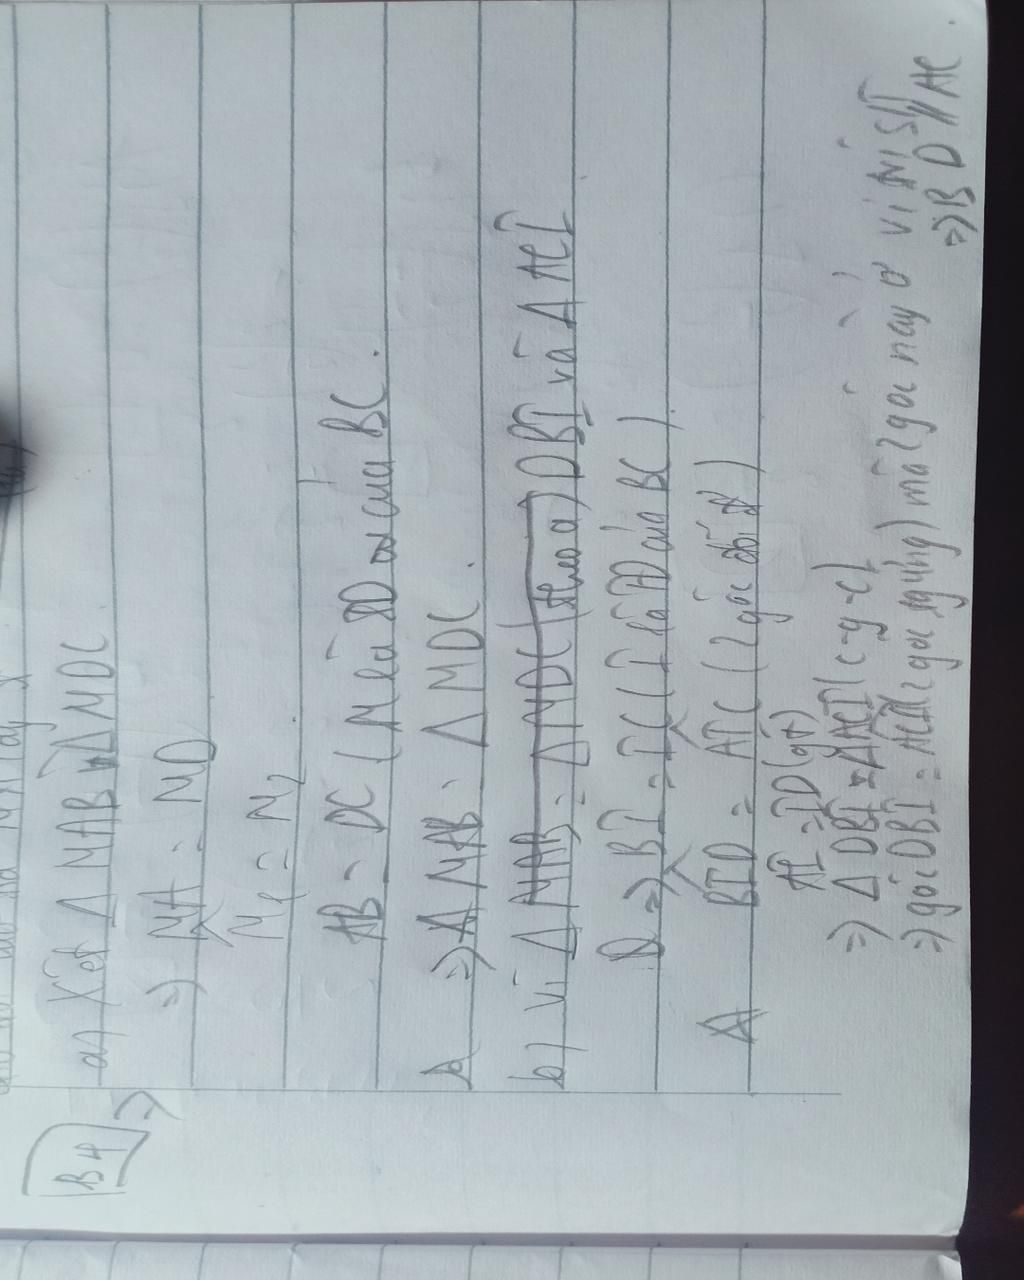 B4
a) Xét Δ MAB và Δ MDC
=> MA = MD
M₁ = M₂
AB = DC (M là TĐ của BC.
=> Δ MAB = Δ MDC.
b) Vì Δ MAB = Δ MDC (theo a) DBI và Δ ACI
=> BI = IC (I là TĐ của BC)
BID = AIC (2 góc đối đỉnh)
AI = ID (gt)
=> Δ DBI = Δ ACI (c-g-c)
=> góc DBI = ACI (2 góc tg ứng) mà 2 góc này ở vị trí SLT
=> BD // AC.